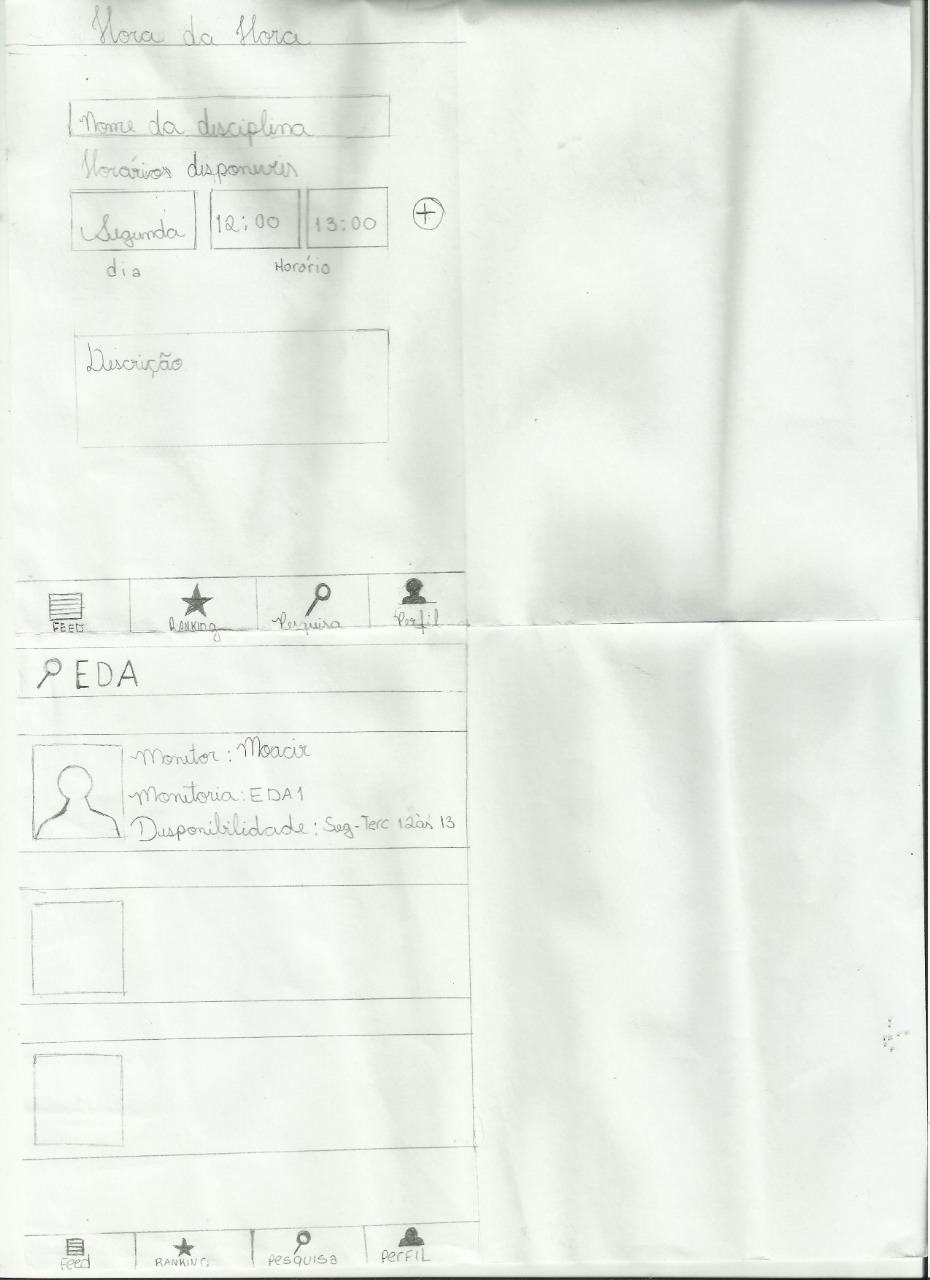 Hora da Hora
Nome da disciplina
Horários disponíveis
Segunda 12:00 13:00
dia Horário
Descrição
FEED RANKING Pesquisa Perfil
EDA
Monitor: Moacir
Monitoria: EDA1
Disponibilidade: Seg-Terc 12às 13
Feed RANKING PESQUISA PERFIL